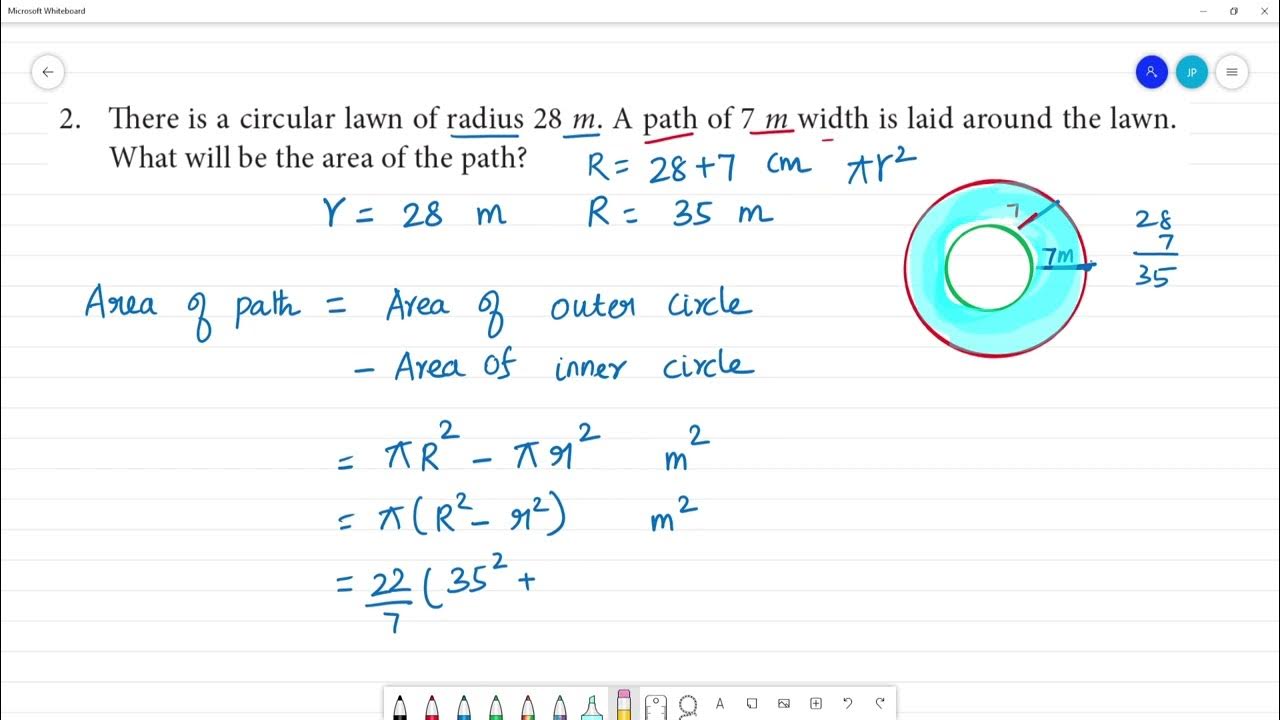 Microsoft Whiteboard
JP
2. There is a circular lawn of radius 28 m. A path of 7 m width is laid around the lawn.
What will be the area of the path?
R = 28+7 cm πr²
r = 28 m R = 35 m
7
7m
28
7
35
Area of path = Area of outer circle
- Area of inner circle
= πR² - πr² m²
= π(R² - r²) m²
= 22/7 (35² +
A